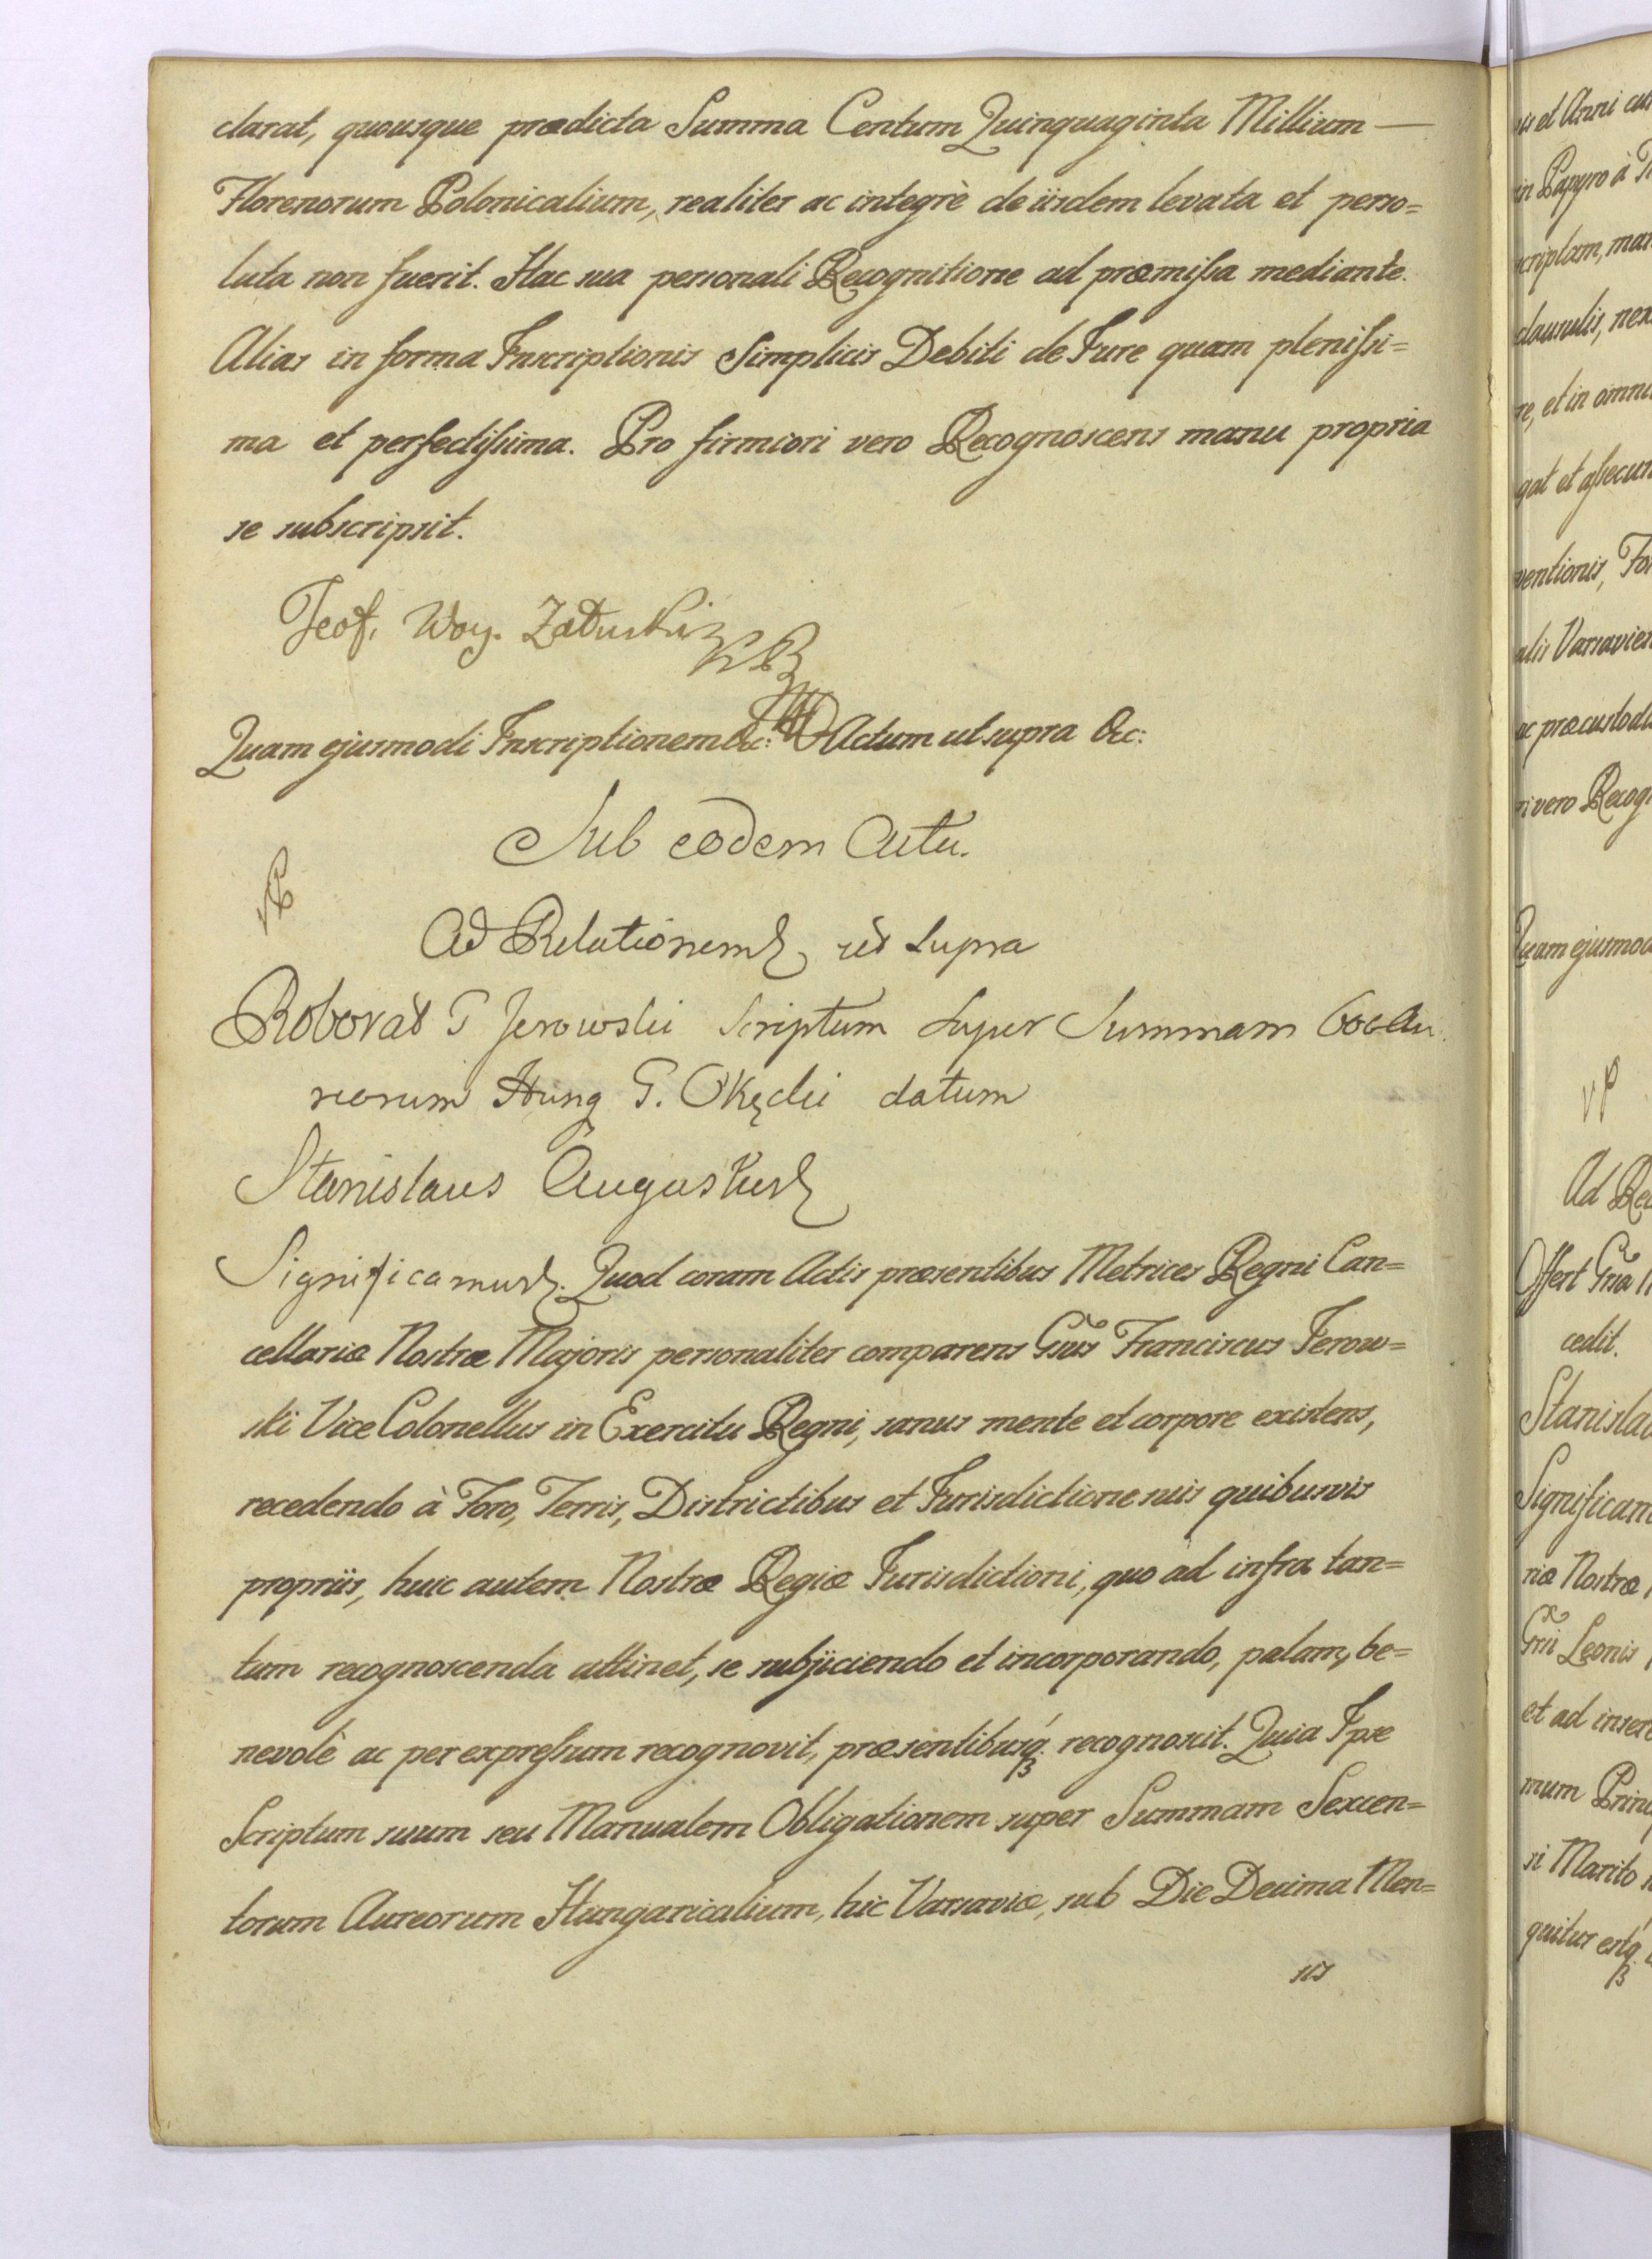 clarat, quousque prædicta Summa Centum Quinquaginta Millium —
Florenorum Polonicalium, realiter ac integrè de iisdem levata et perso=
luta non fuerit. Hac sua personali Recognitione ad præmissa mediante.
Alias in forma Inscriptionis Simplicis Debiti de Jure quam plenissi=
ma et perfectissima. Pro firmiori vero Recognoscens manu propria
se subscripsit.
Teof. Woy. Załuski
Quam ejusmodi Inscriptionem &c: Actum ut supra &c:
Sub eodem Actu.
Ad Relationem ut supra
Roborat G Jerowski Scriptum super Summam 600 Au
reorum Hung G. Okęcki datum
Stanislaus Augustus
Significamus. Quod coram Actis præsentibus Metrices Regni Can=
cellariæ Nostræ Majoris personaliter comparens Gnus Franciscus Jerow=
ski Vice Colonellus in Exercitu Regni, sanus mente et corpore existens,
recedendo à Foro, Terris, Districtibus et Jurisdictione suis quibusvis
propriis, huic autem Nostræ Regiæ Jurisdictioni, quo ad infra tan=
tum recognoscenda attinet, se subjiciendo et incorporando, palam, be=
nevolè ac per expressum recognovit, præsentibusq; recognoscit. Quia Ipse
Scriptum suum seu Manualem Obligationem super Summam Sexcen=
torum Aureorum Hungaricalium, hic Varsaviæ, sub Die Decima Men=
sis
is et Anni
in Papyro à
scriptam,
clausulis,
re, et in
gat et
ventionis,
alis
ri vero
Quam
Ad
Offert Gna
cedit.
riæ Nostræ
Gni Leonis
et ad
mum
ri Marito
quitur estq;